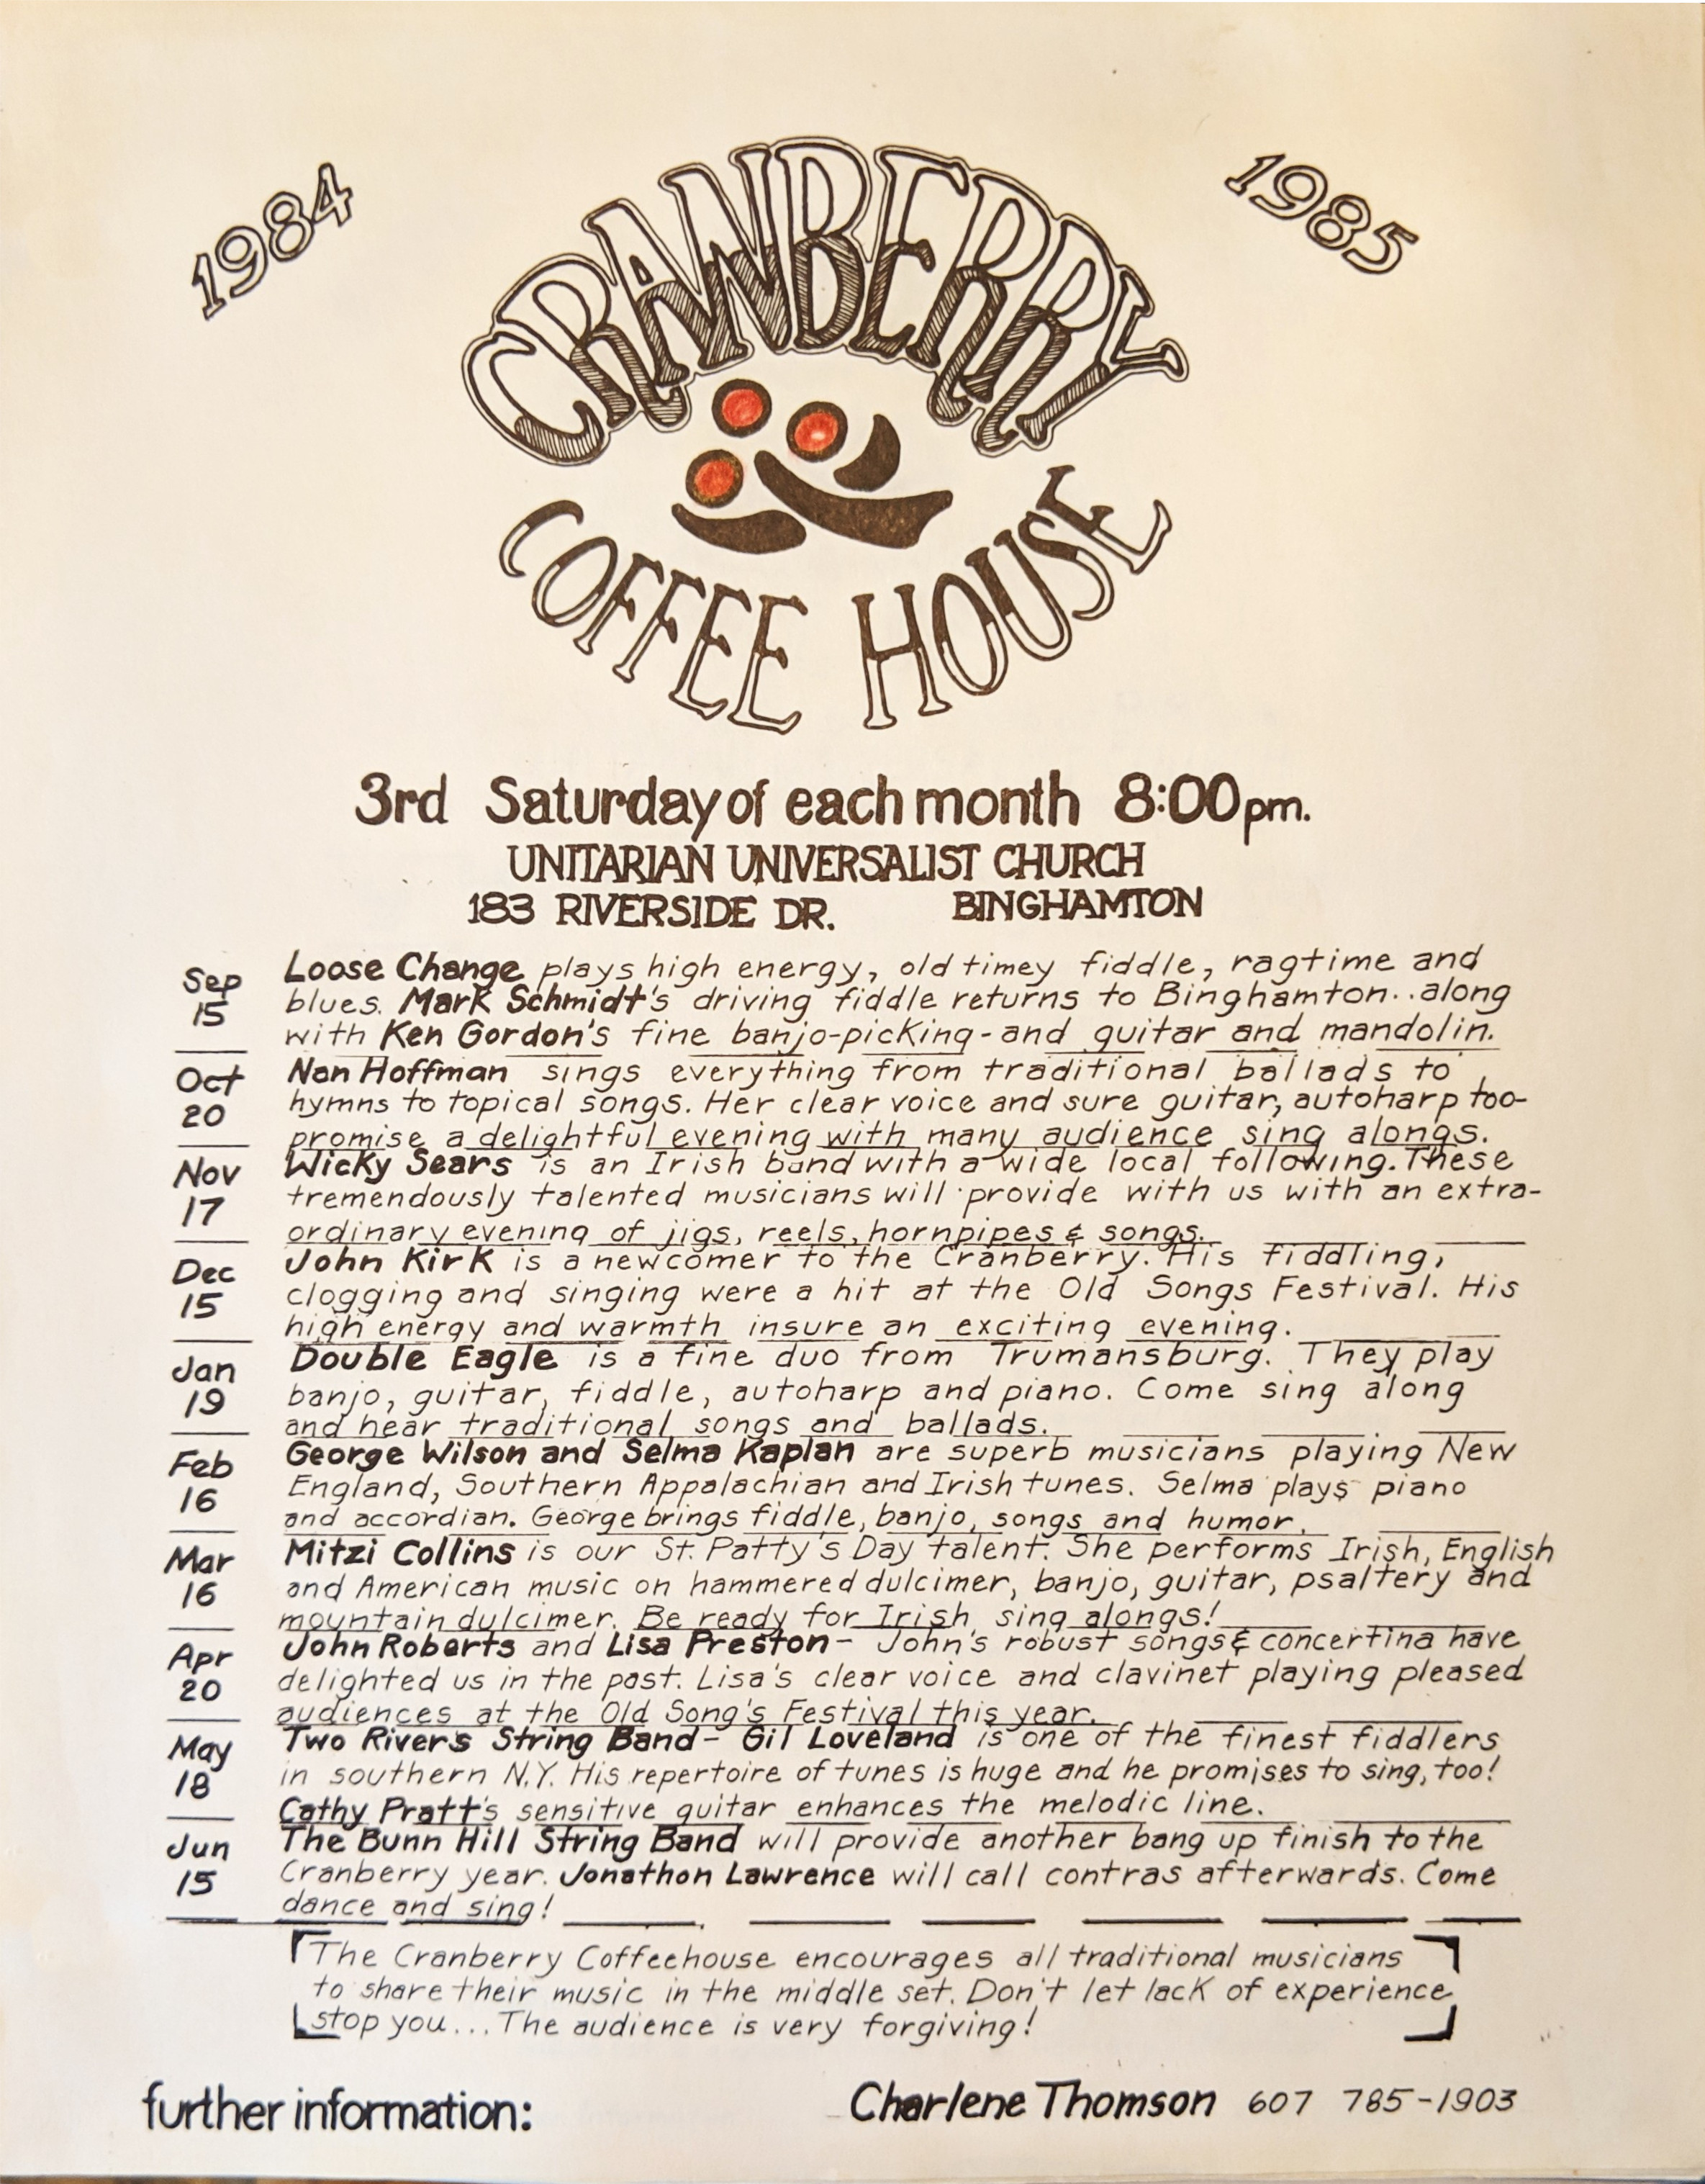 1984
1985
CRANBERRY
COFFEE HOUSE
3rd Saturday of each month 8:00pm.
UNITARIAN UNIVERSALIST CHURCH
183 RIVERSIDE DR. BINGHAMTON
Sep
15
Loose Change plays high energy, old timey fiddle, ragtime and
blues. Mark Schmidt's driving fiddle returns to Binghamton..along
with Ken Gordon's fine banjo-picking-and guitar and mandolin.
Oct
20
Nan Hoffman sings everything from traditional ballads to
hymns to topical songs. Her clear voice and sure guitar, autoharp too-
promise a delightful evening with many audience sing alongs.
Nov
17
Wicky Sears is an Irish band with a wide local following. These
tremendously talented musicians will provide with us with an extra-
ordinary evening of jigs, reels, hornpipes & songs.
Dec
15
John Kirk is a newcomer to the Cranberry. His fiddling,
clogging and singing were a hit at the Old Songs Festival. His
high energy and warmth insure an exciting evening.
Jan
19
Double Eagle is a fine duo from Trumansburg. They play
banjo, guitar, fiddle, autoharp and piano. Come sing along
and hear traditional songs and ballads.
Feb
16
George Wilson and Selma Kaplan are superb musicians playing New
England, Southern Appalachian and Irish tunes. Selma plays piano
and accordian. George brings fiddle, banjo, songs and humor.
Mar
16
Mitzi Collins is our St. Patty's Day talent. She performs Irish, English
and American music on hammered dulcimer, banjo, guitar, psaltery and
mountain dulcimer. Be ready for Irish sing alongs!
Apr
20
John Roberts and Lisa Preston- John's robust songs & concertina have
delighted us in the past. Lisa's clear voice and clavinet playing pleased
audiences at the Old Song's Festival this year.
May
18
Two Rivers String Band- Gil Loveland is one of the finest fiddlers
in southern N.Y. His repertoire of tunes is huge and he promises to sing, too!
Cathy Pratt's sensitive guitar enhances the melodic line.
Jun
15
The Bunn Hill String Band will provide another bang up finish to the
Cranberry year. Jonathon Lawrence will call contras afterwards. Come
dance and sing!
The Cranberry Coffeehouse encourages all traditional musicians
to share their music in the middle set. Don't let lack of experience
stop you...The audience is very forgiving!
further information: Charlene Thomson 607 785-1903